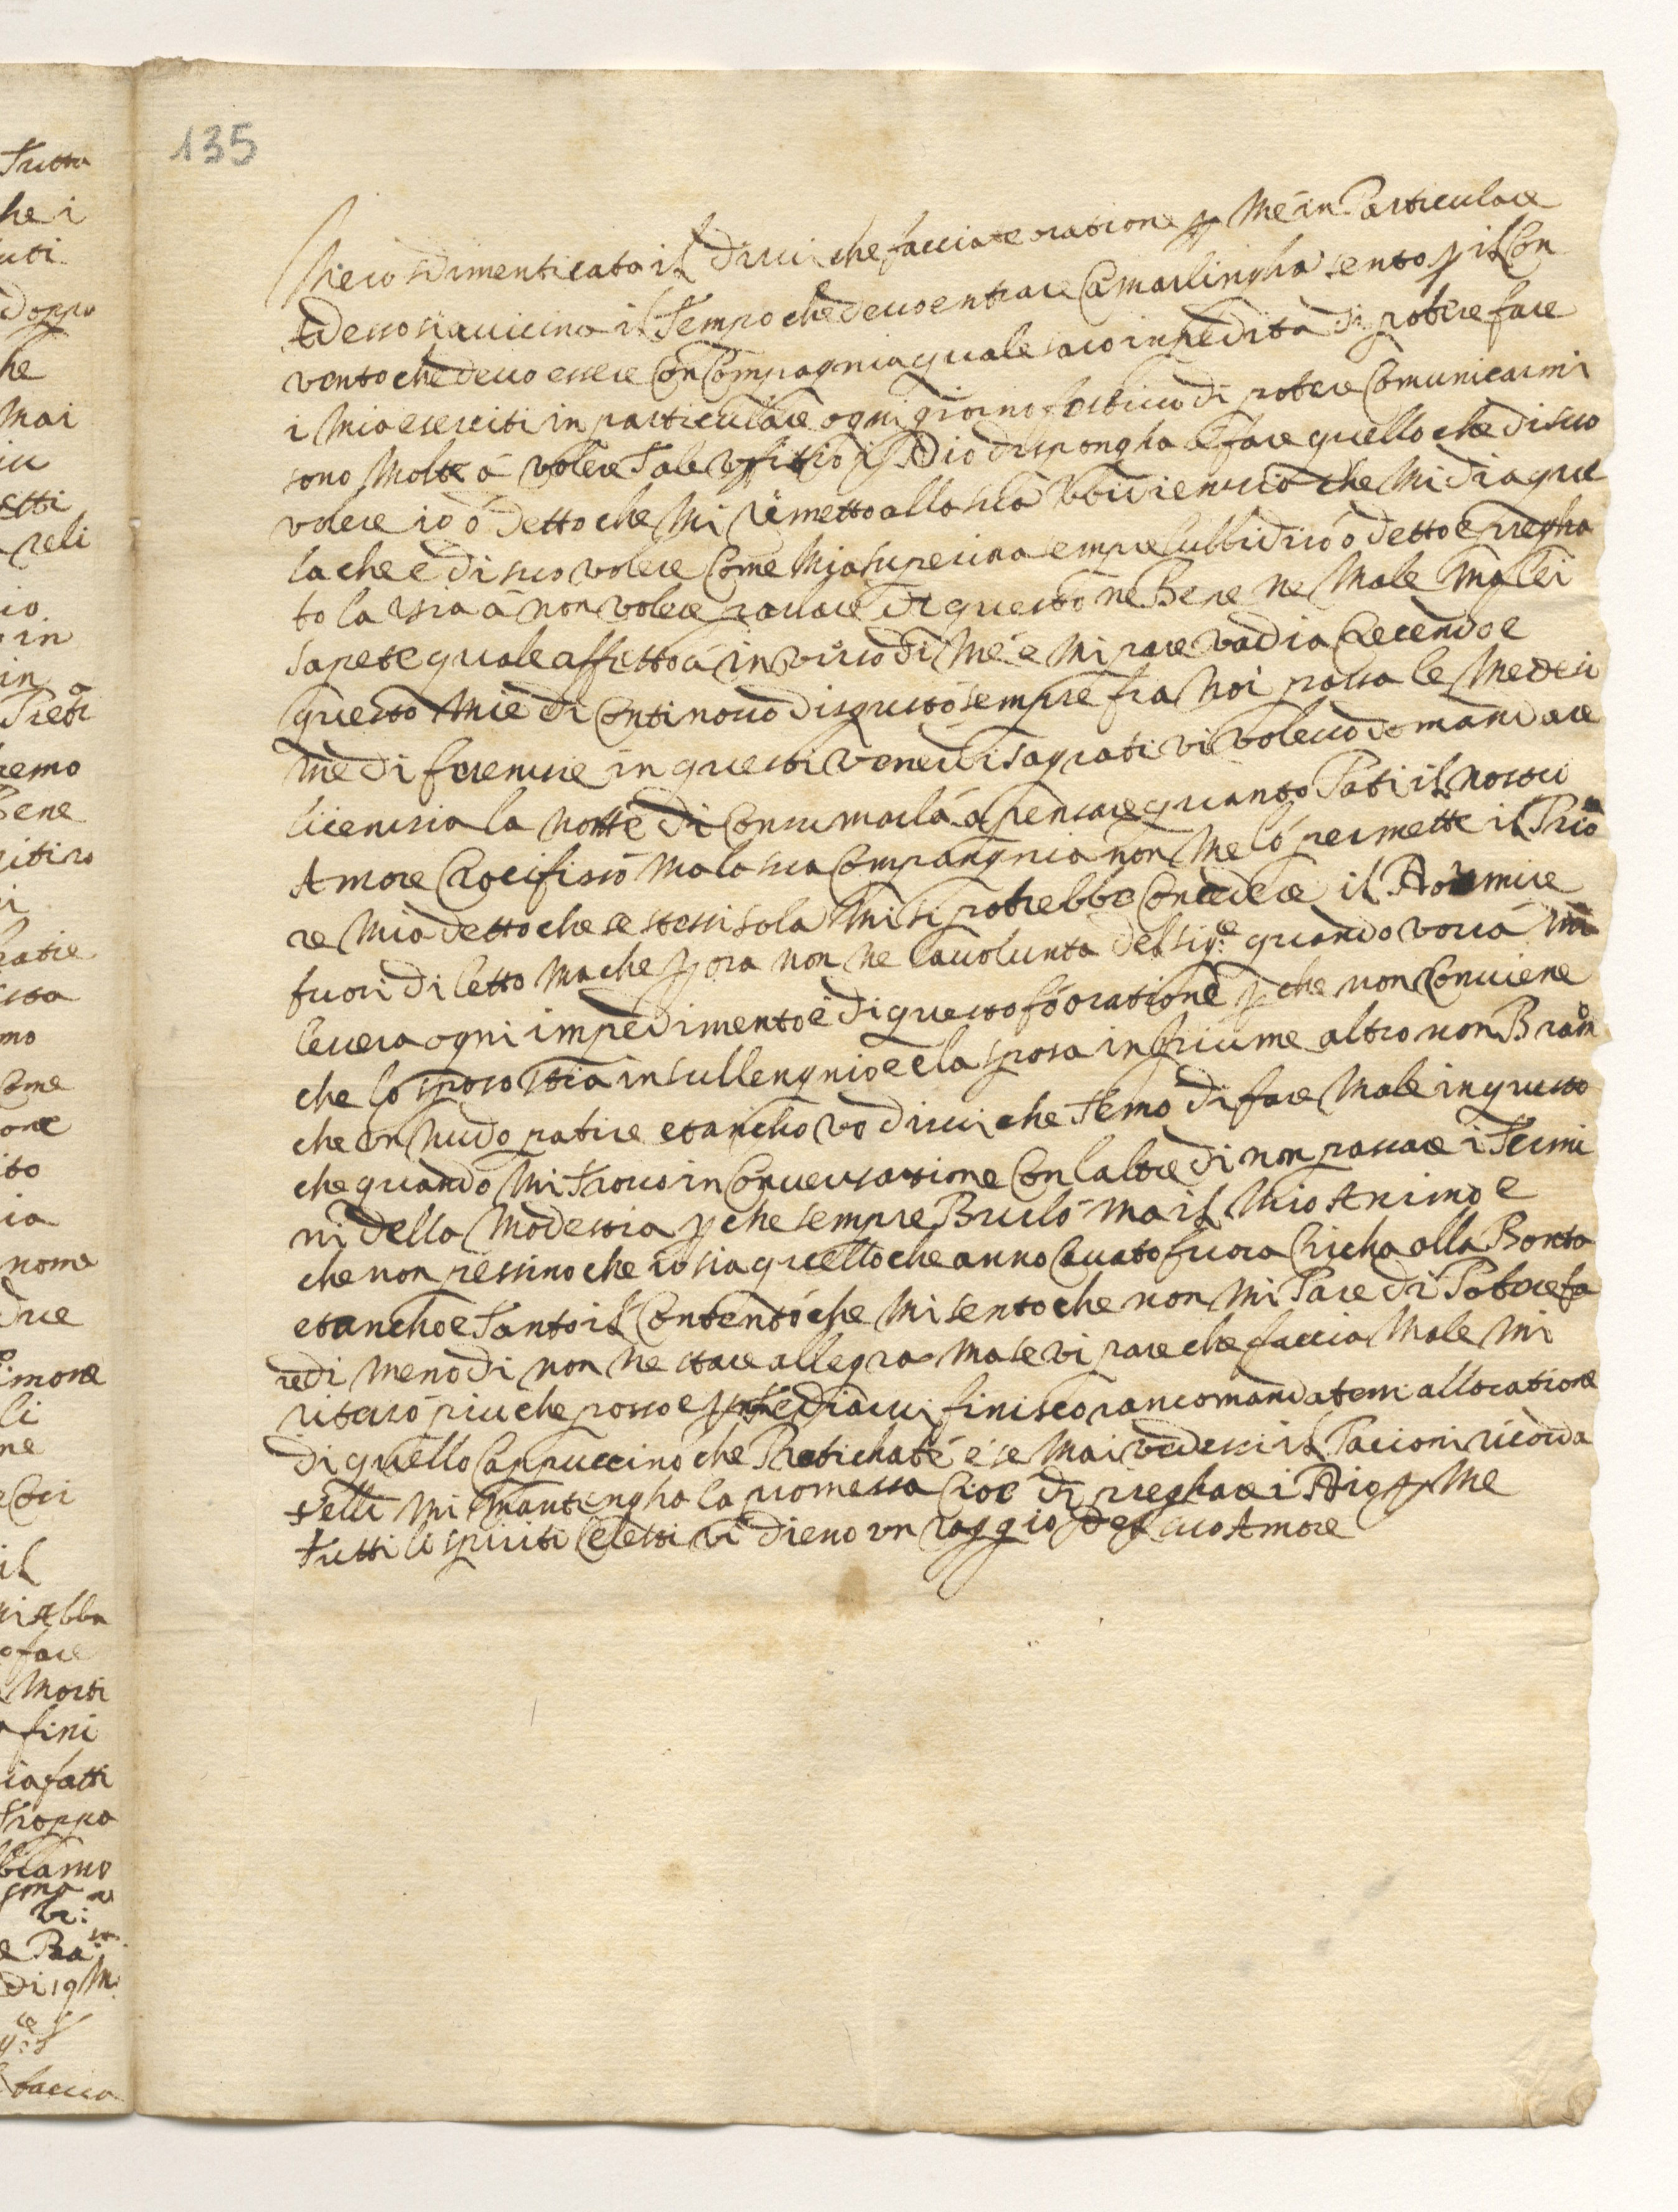 135
Mero sdimenticata il dirvi che facciate oratione p me in Particulare
Adesso si avicina il Tempo che devo entrare Camarlingha sento p il Con
vento che devo essere Con Compagnia quale saro inpedita di potere fare
i Mia eserciti in particulare ogni giorno di potere Comunicarmi
sono Molte á volere Tale Vffitio Dio dispongha é fare quello che di suo
volere io ó detto che Mi rimetto alla sua Vbidienzia che Mi dia quel
la che é di suo volere Come Mia superiora sempre lubbidiró ó detto é pregha
to la á non volere parlare di questo ne Bene ne Male Ma lei
sapete quale affetto á in verso di Mé é Mi pare vadia Crecendo e
questo Mié di Continovo disgusto sempre fra Noi passa le Medesi
me diferenzie in questi venerdi sagrati vi volevo domandare
licenzia la Notte di Consumarla á pensare quanto Pati il nostro
Amore Crocifisso Ma la sua Compangnia non Me ló permette il Prio
re Mia detto che se stessi sola Mi si potrebbe Concedere il dormire
fuori di letto Ma che p ora non ne la volunta del Sig:re quando vorrá Mi
levera ogni impedimento é di questo fó oratione p che non Conviene
che lo sposo stia in sullengnio e la sposa in altro non Bram
che un Nudo patire et ancho vo dirvi che Temo di fare Male in questo
che quando Mi Trovo in Conversatione Con laltre di non passare i Termi
ni della Modestia p che sempre Burlo Ma il Mio Animo e
che non pessino che io sia quello che anno Cavato fuora Richa alla Bonta
et ancho e Tanto il Contento che Mi sento che non Mi Pare di Potere fa
re di Meno di non ne stare allegra Ma se vi pare che faccia Male Mi
riteró piu che posso e p finisco rancomandatemi alloratione
di quello Cappuccino che Pratichaté é se Mai vedessi il Pacioni ricorda
telli Mi Mantengha la promessa Cioé di preghare i Dio p Me
Tutti li spiriti Celesti vi dieno vn raggio del suo Amore